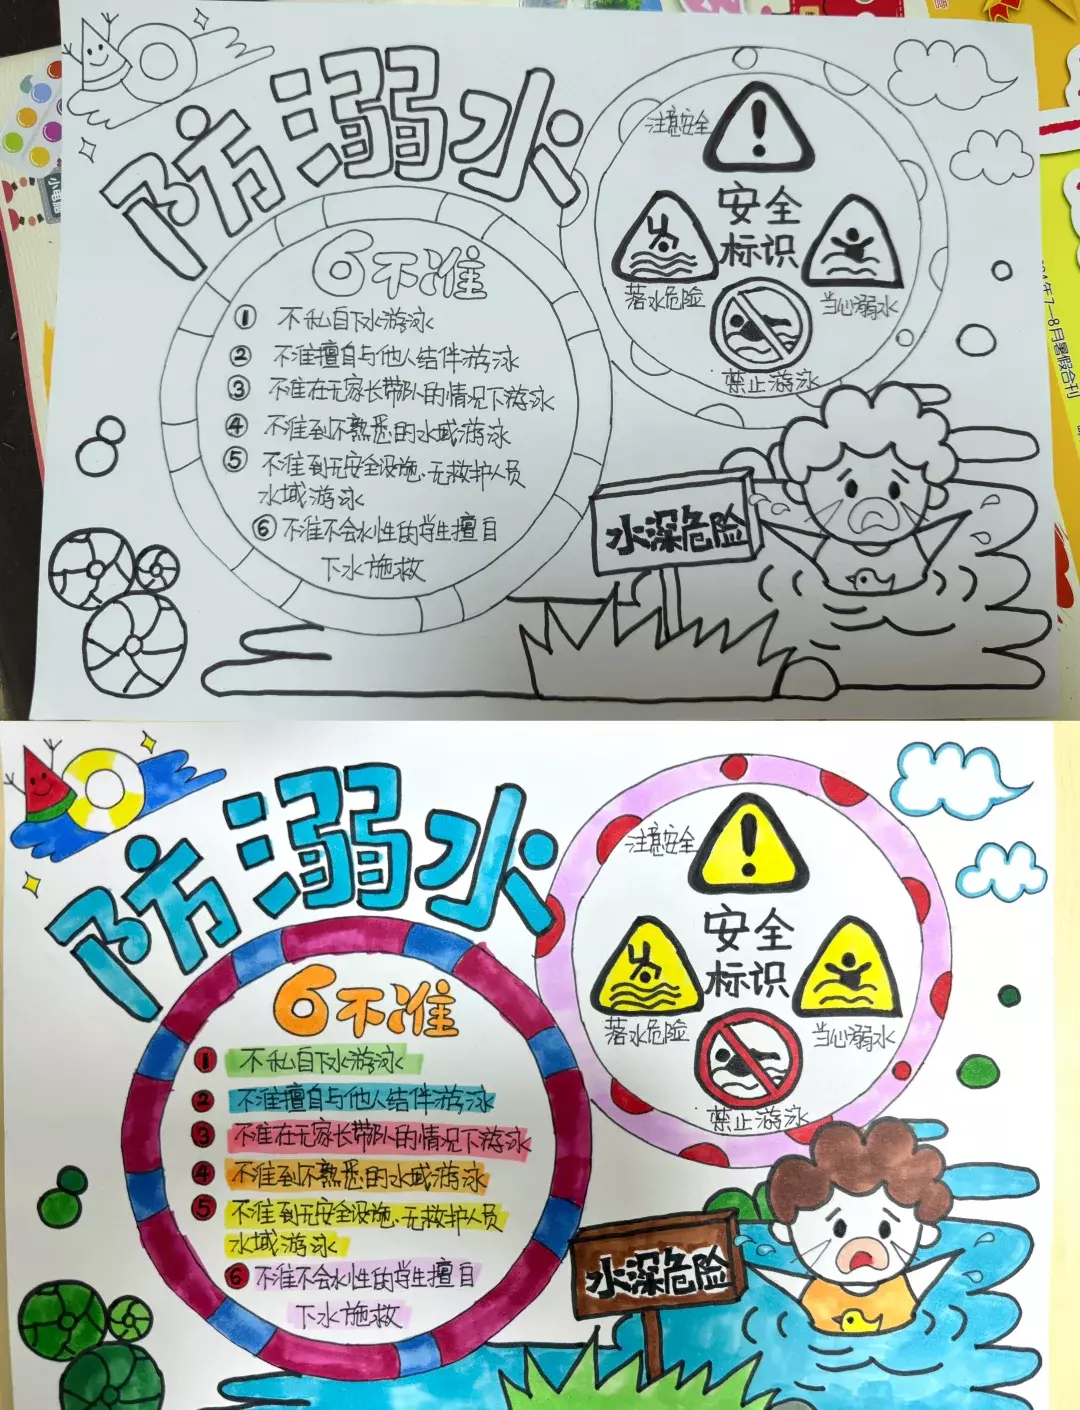 防溺水
6不准
① 不私自下水游泳
② 不准擅自与他人结伴游泳
③ 不准在无家长带队的情况下游泳
④ 不准到不熟悉的水域游泳
⑤ 不准到无安全设施、无救护人员
水域游泳
⑥ 不准不会水性的学生擅自
下水施救
注意安全
安全
标识
落水危险
当心溺水
禁止游泳
水深危险
小电脑
年7-8月暑假合刊
防溺水
6不准
1 不私自下水游泳
2 不准擅自与他人结伴游泳
3 不准在无家长带队的情况下游泳
4 不准到不熟悉的水域游泳
5 不准到无安全设施、无救护人员
水域游泳
6 不准不会水性的学生擅自
下水施救
注意安全
安全
标识
落水危险
当心溺水
禁止游泳
水深危险